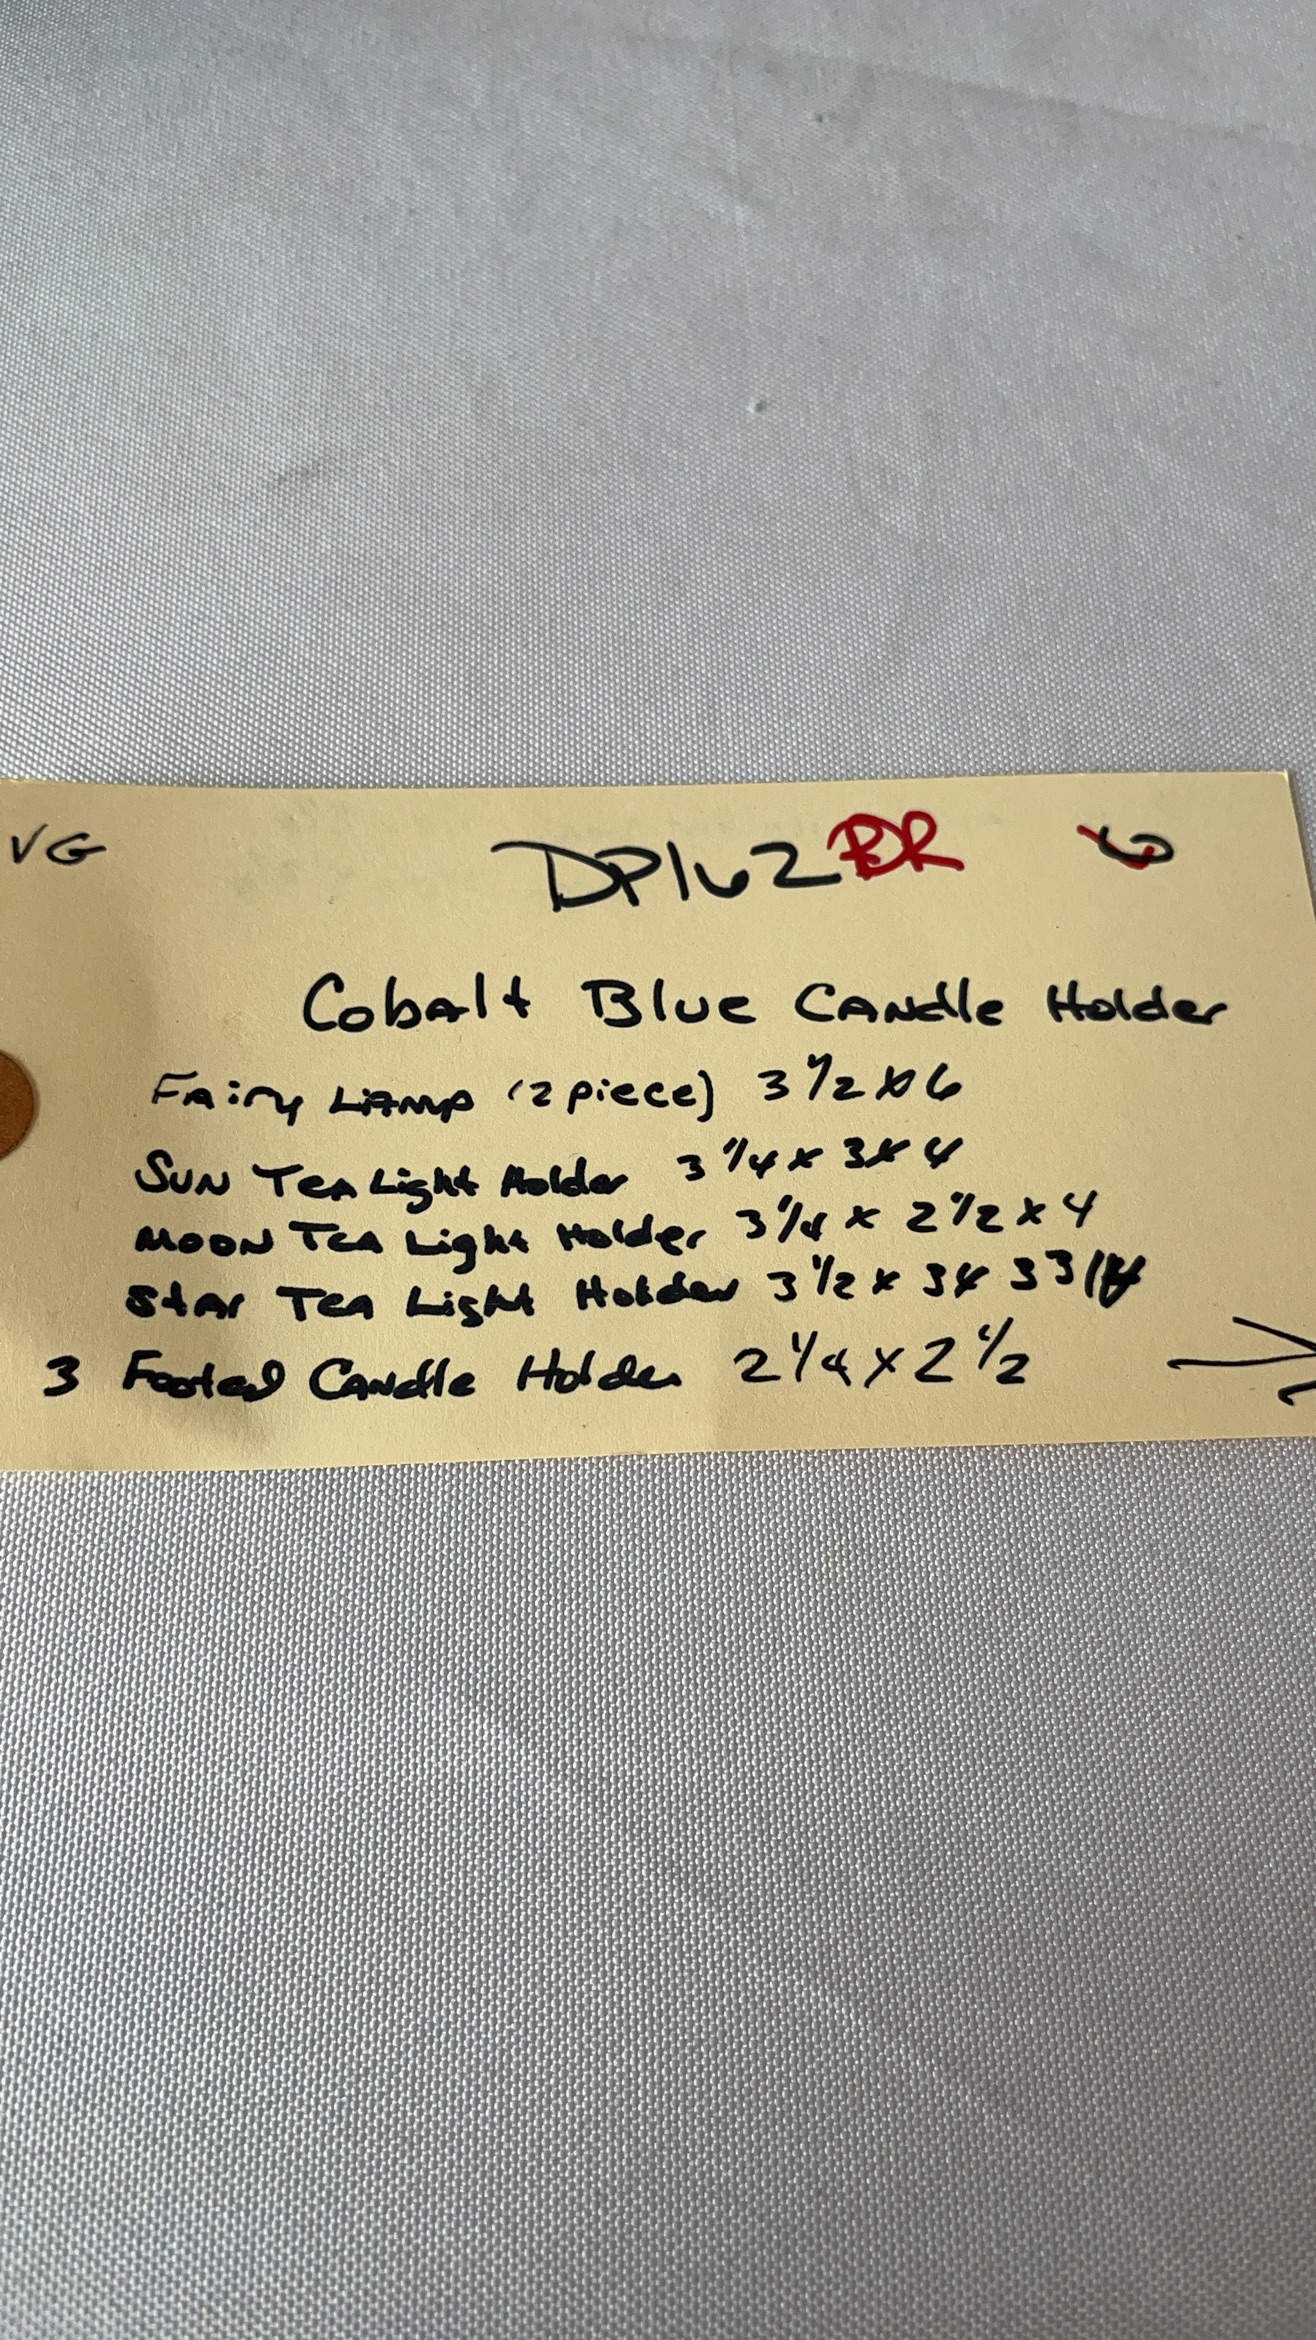 VG DP162 BR
Cobalt Blue Candle Holder
Fairy Lamp (2 piece) 3 1/2 x 6
Sun Tea Light Holder 3 1/4 x 3 x 4
Moon Tea Light Holder 3 1/4 x 2 1/2 x 4
Star Tea Light Holder 3 1/2 x 3 x 3
3 Footed Candle Holder 2 1/4 x 2 1/2